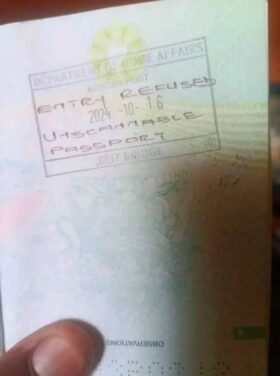 DEPARTMENT OF HOME AFFAIRS
BORDER POST
ENTRY REFUSED
2024 -10- 16
UNSCANNABLE
PASSPORT
BEIT BRIDGE
OBSERVATIONS